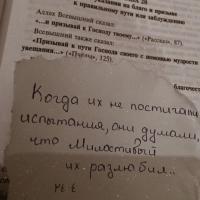 к правильному пути или заблуждению
Аллах Всевышний сказал:
«...и призывай к Господу твоему...» («Рассказ», 87).
Всевышний также сказал:
«Призывай к пути Господа своего с помощью мудрости
увещания...» («Пчёлы», 125).
Когда их не постигали
испытания, они думали,
что Милостивый
их разлюбил..